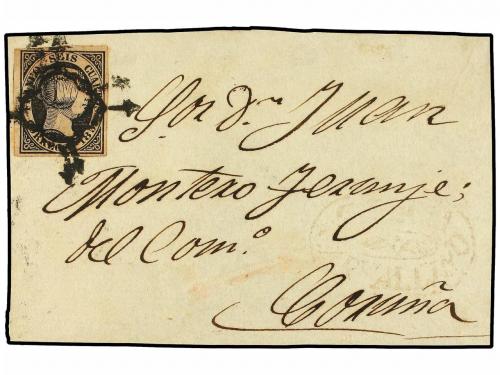 SEIS CUA
Sor Dn Juan
Montero Jeranje;
del Com.o
Coruña